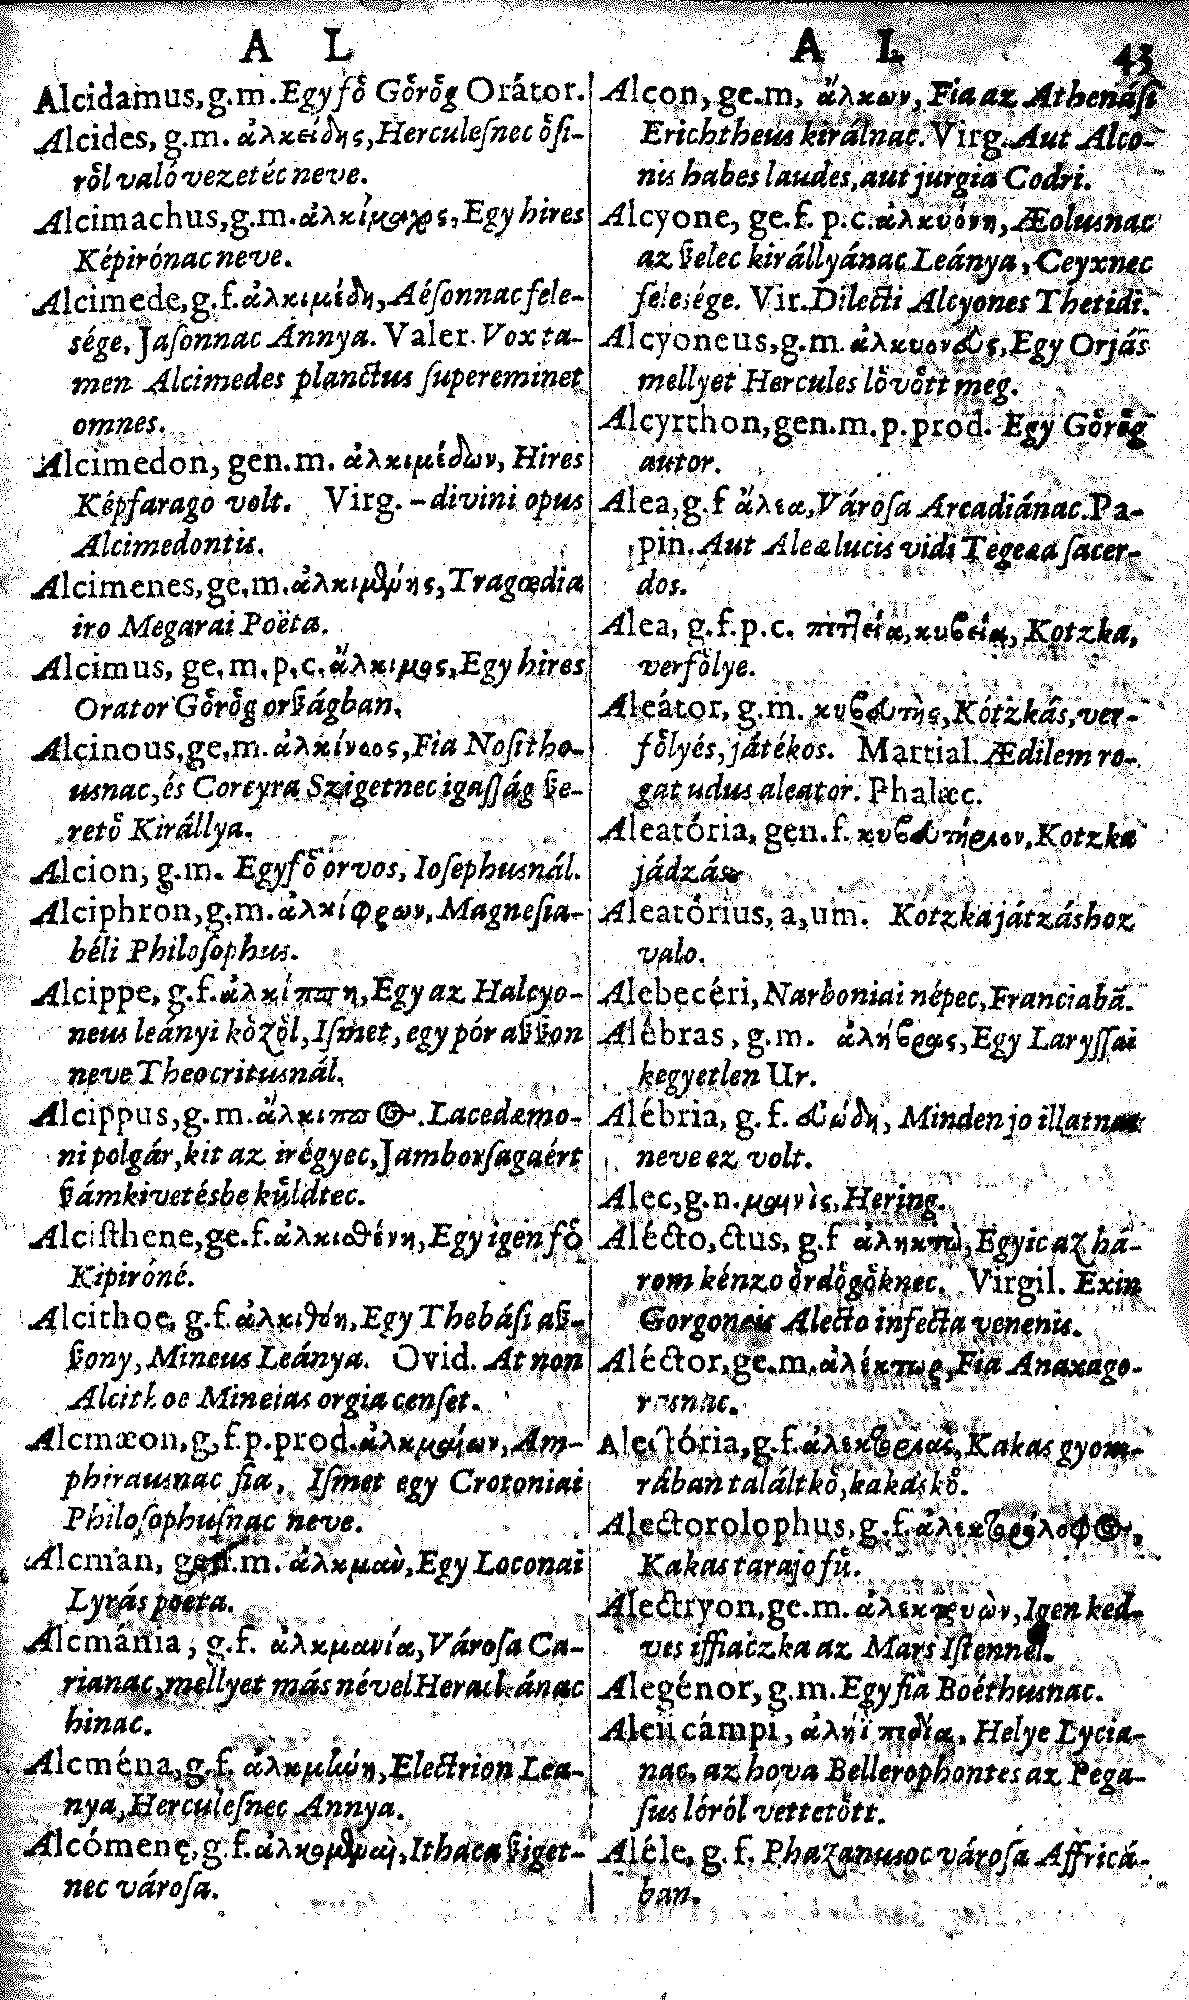 A L
Alcidamus, g.m. Egy fő Gőrőg Orátor.
Alcides, g.m. ἀλκείδης, Herculeſnec őſi-
ről való vezetéc neve.
Alcimachus, g.m. ἀλκίμαχος, Egy hires
Képirónac neve.
Alcimede, g.f. ἀλκιμέδη, Aéſonnac fele-
sége, Jaſonnac Annya. Valer. Vox ta-
men Alcimedes planctus ſupereminet
omnes.
Alcimedon, gen.m. ἀλκιμέδων, Hires
Képfarago volt. Virg. – divini opus
Alcimedontis.
Alcimenes, ge.m. ἀλκιμένης, Tragœdia
iro Megarai Poëta.
Alcimus, ge.m. p.c. ἄλκιμος, Egy hires
Orator Gőrőg orßágban.
Alcinous, ge.m. ἀλκίνοος, Fia Noſitho-
usnac, és Corcyra Szigetnec igaſſág ße-
retó́ Királlya.
Alcion, g.m. Egy fő orvos, Ioſephusnál.
Alciphron, g.m. ἀλκίφρων, Magneſia-
béli Philoſophus.
Alcippe, g.f. ἀλκίππη, Egy az Halcyo-
neus leányi kőzől, Iſmet, egy pór aßßon
neve Theocritusnál.
Alcippus, g.m. ἄλκιππος. Lacedæmo-
ni polgár, kit az irégyec, Jamborſagaért
ßámkivetésbe kűldtec.
Alcisthene, ge.f. ἀλκισθένη, Egy igen fő
Kipiróné.
Alcithoe, g.f. ἀλκιθόη, Egy Thebáſi aß-
ßony, Mineus Leánya. Ovid. At non
Alcithoe Mineias orgia censet.
Alcmæon, g.f. p.prod. ἀλκμαίων, Am-
phirausnac fia, Iſmet egy Crotoniai
Philoſophuſnac neve.
Alcman, gen.m. ἀλκμαὺ, Egy Loconai
Lyrás poeta.
Alcmánia, g.f. ἀλκμανία, Vároſa Ca-
rianac, mellyet más névvel Heracl ánac
hinac.
Alcména, g.f. ἀλκμήνη, Electrion Lea-
nya, Herculeſnec Annya.
Alcómenę, g.f. ἀλκομεναὶ, Ithaca ßiget-
nec városa.
A L 43
Alcon, ge.m. ἄλκων, Fia az Athenáſi
Erichtheus királnac. Virg. Aut Alco-
nis habes laudes, aut jurgia Codri.
Alcyone, ge.f. p.c. ἀλκυόνη, Æolusnac
az ßelec királlyánac Leánya, Ceyxnec
feleſége. Vir. Dilecti Alcyones Thetidi.
Alcyoneus, g.m. ἀλκυονεύς, Egy Orjás
mellyet Hercules lővőtt meg.
Alcyrthon, gen.m. p.prod. Egy Gőrőg
autor.
Alea, g.f ἄλεα, Vároſa Arcadiánac. Pa-
pin. Aut Aleæ lucis vidi Tegeæa ſacer-
dos.
Alea, g.f. p.c. πεττεία, κυβεία, Kotzka,
verfőlye.
Aleátor, g.m. κυβευτὴς, Kótzkás, ver-
főlyés, játékos. Martial. Ædilem ro-
gat udus aleator. Phalæc.
Aleatória, gen.f. κυβευτήριον, Kotzka
jádzás.
Aleatórius, a, um. Kotzkajátzáshoz
valo.
Alebecéri, Narboniai népec, Franciabā.
Alébras, g.m. ἀλήβρας, Egy Laryſſai
kegyetlen Ur.
Alébria, g.f. εὐώδη, Minden jo illatnac
neve ez volt.
Alec, g.n. μαινὶς, Hering.
Alécto, ctus, g.f ἀληκτὼ, Egyic az há-
rom kénzo őrdőgőknec. Virgil. Exin
Gorgoneis Alecto infecta venenis.
Aléctor, ge.m. ἀλέκτωρ, Fia Anaxago-
rusnac.
Alectória, g.f. ἀλεκτορίας, Kakas gyom-
rában talált kő, kakás kő.
Alectorolophus, g.f. ἀλεκτορόλοφος,
Kakas tarajo fű.
Alectryon, ge.m. ἀλεκτρυὼν, Igen ked-
ves iffiaczka az Mars Iſtennel.
Alegénor, g.m. Egy fia Boéthusnac.
Aleii cámpi, ἀλήϊ πεδία, Helye Lycia-
nac, az hova Bellerophontes az Pega-
sus lóról vettetőtt.
Aléle, g.f. Phazanusoc városa Affricá-
ban.